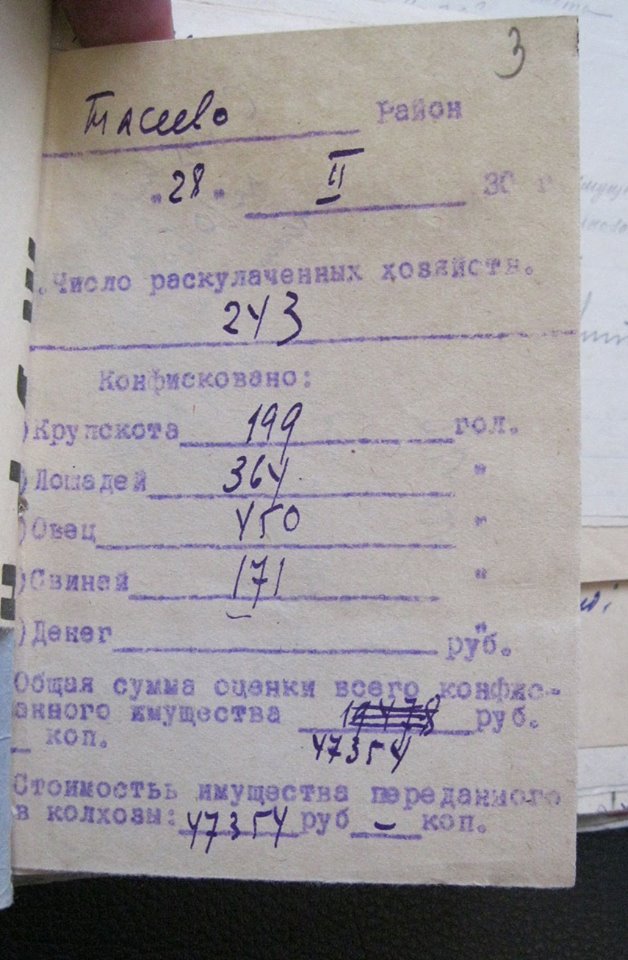 3
Тасеево Район
"28" II 30 г
.Число раскулаченных хозяйств.
243
Конфисковано:
)Крупскота 199 гол.
)Лошадей 364 "
)Овец 450 "
)Свиней 171 "
)Денег руб.
Общая сумма оценки всего конфис-
анного имущества 19478 руб.
47354
_ коп.
Стоимостьь имущества переданного
в колхозы: 47354 руб — коп.